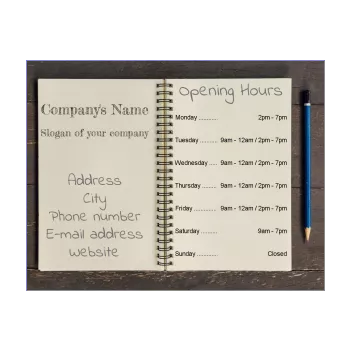 Company's Name
Slogan of your company
Address
City
Phone number
E-mail address
Website
Opening Hours
Monday .......... 2pm - 7pm
Tuesday .......... 9am - 12am / 2pm - 7pm
Wednesday .... 9am - 12am / 2pm - 7pm
Thursday ........ 9am - 12am / 2pm - 7pm
Friday .............. 9am - 12am / 2pm - 7pm
Saturday .......... 9am - 7pm
Sunday ............ Closed